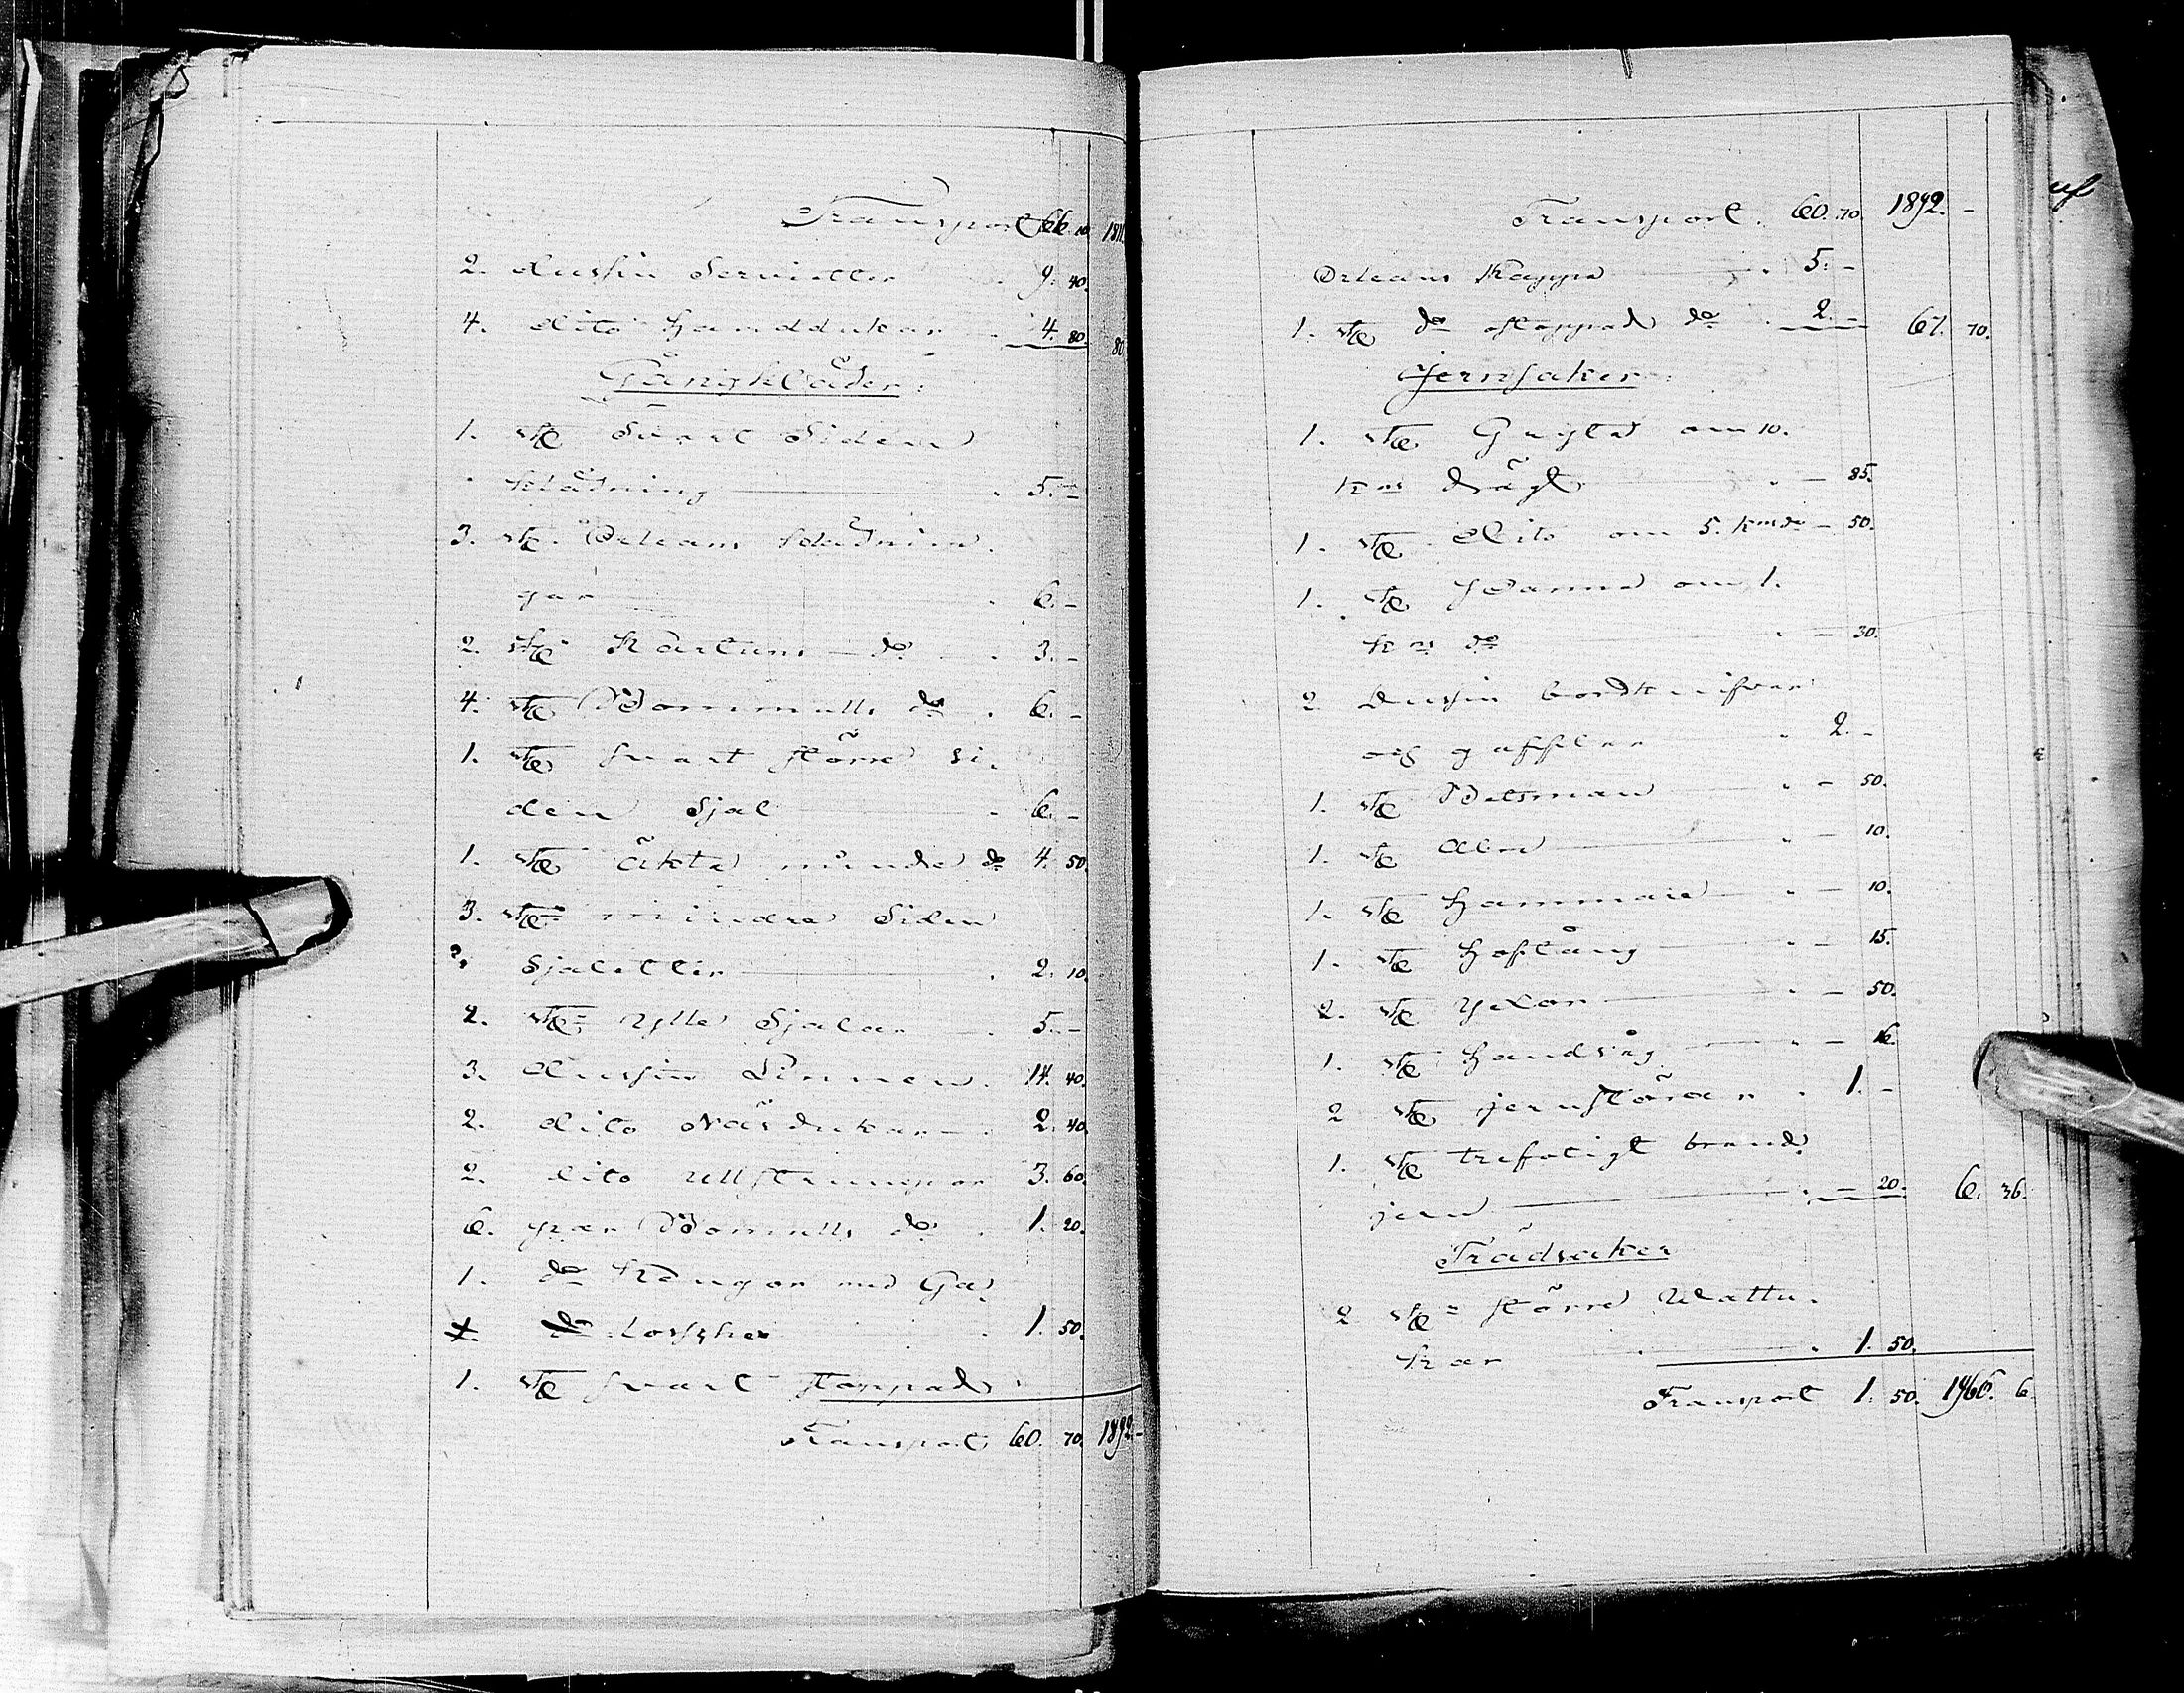 Transport 66. 10. 1811.
2. dussin Servietter 9. 40.
4. dito Handdukar 4. 80. 80
Gångkläder:
1. st. Svart Siden
klädning 5. -
3. st. Orleans klädnin.
gar 6. -
2. st. Kartuns do 3. -
4. st. Bommulls do 6. -
1. st. svart större si.
den Sjal 6. -
1. st. äkta mindre do 4. 50.
3. st. mindre Siden
Sjaletter 2. 10.
2. st. ylle Sjalar 5. -
3. dussin Linnen 14. 40.
2. dito Näsdukar 2. 40.
2. dito Ullstrumpor 3. 60.
6. par Bomulls do 1. 20.
1. do Kängor med Ga.
losher 1. 50.
1. st. svart stoppad
Transport 60. 70. 1892. -
Transport. 60. 70. 1892. -
Orleans Kappa 5. -
1. st. do ostoppad do 2. - 67. 70.
Jernsaker:
1. st. Gryta om 10.
kns drägt - 85.
1. st. dito om 5. kns do - 50.
1. st. Panna om 1.
kns do - 30.
2 Dussin bordknifvar
och gafflar 2. -
1. st. Betsman - 50.
1. st. Aln - 10.
1. st. Hammare - 10.
1. st. Hoftång - 15.
2. st. Yxor - 50.
1. st. Handsåg - 16.
2 st. jernstörar 1. -
1. st. trefotigt brand
jern - 20. 6. 36.
Trädsaker
2 st. större Wattu.
kar 1. 50.
Transport 1. 50. 1966. 6.